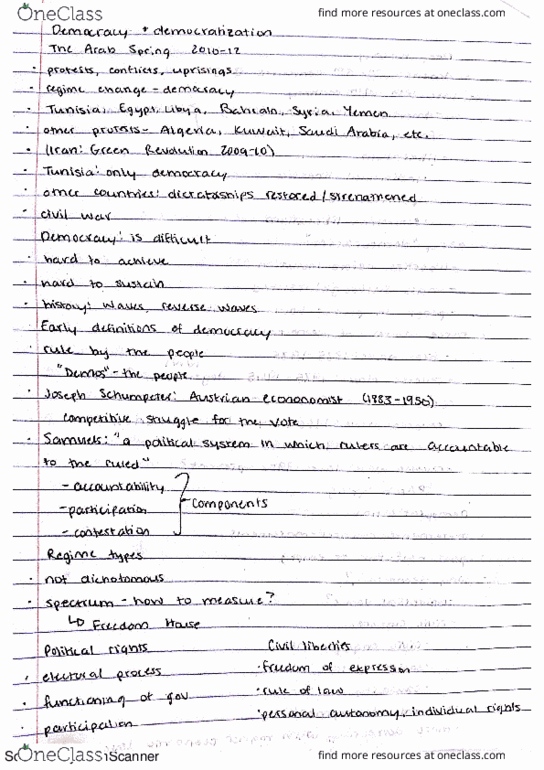 OneClass find more resources at oneclass.com
Democracy + democratization
The Arab Spring 2010-12
· protests, conflicts, uprisings
· regime change - democracy
· Tunisia, Egypt, Libya, Bahrain, Syria, Yemen
· other protests - Algeria, Kuwait, Saudi Arabia, etc.
· (Iran: Green Revolution 2009-10)
· Tunisia: only democracy
· other countries: dictatorships restored/strenghened
· civil war
Democracy: is difficult
· hard to achieve
· hard to sustain
· history: waves, reverse waves
Early definitions of democracy
· rule by the people
"Demos" - the people
· Joseph Schumpeter: Austrian economist (1883-1950)
competitive struggle for the vote
· Samuels: "a political system in which rulers are accountable
to the ruled"
- accountability
- participation Components
- contestation
Regime types
· not dichotomous
· spectrum - how to measure?
↳ Freedom House
Political rights Civil liberties
· electoral process · freedom of expression
· functioning of gov · rule of law
· participation · personal autonomy, individual rights
OneClass Scanner find more resources at oneclass.com